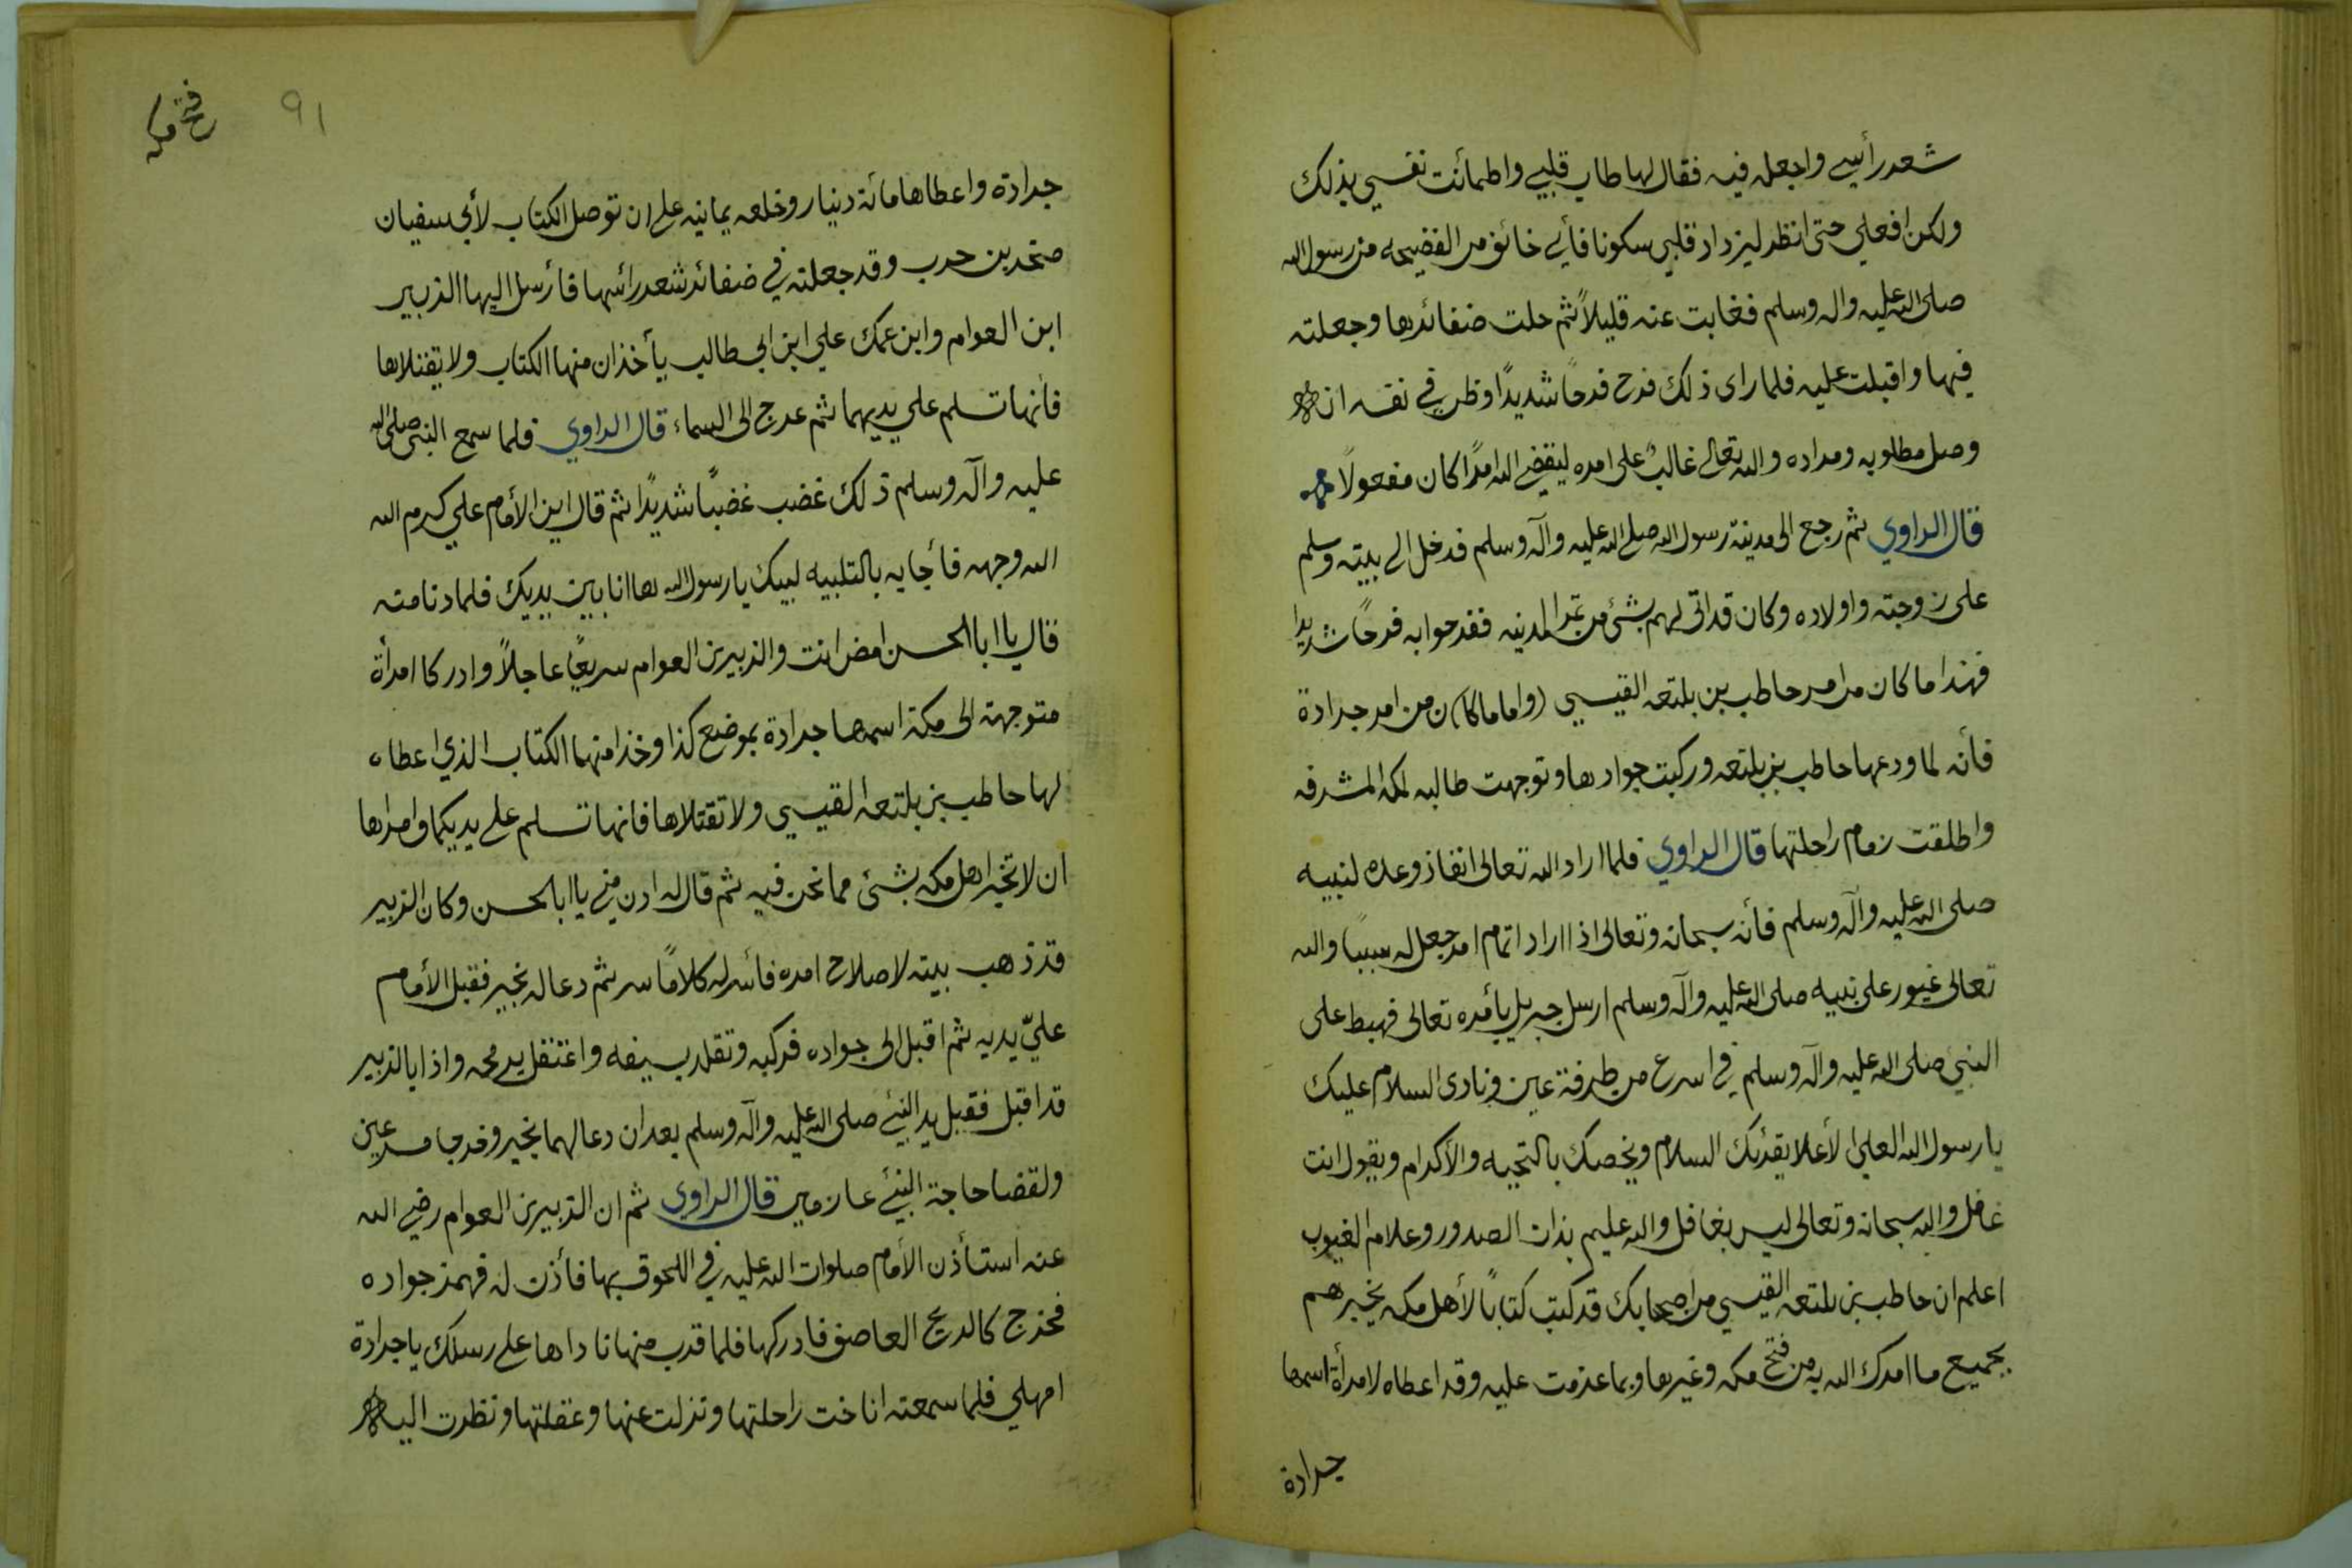 شعر رأسي واجعله فيه فقال لها طاب قلبي واطمأنت نفسي بذلك
ولكن افعلي حتى انظر ليزداد قلبي سكونا فأني خائف من الفضيحه من رسول الله
صلى الله عليه واله وسلم فغابت عنه قليلاً ثم حلت ضفائرها وجعلته
فيها واقبلت عليه فلما راى ذلك فرح فرحاً شديدًا وظن في نفسه انه
وصل مطلوبه ومراده والله تعالى غالبٌ على امره ليقضي الله امرًا كان مفعولاً
قال الراوي ثم رجع الى مدينة رسول الله صلى الله عليه وآله وسلم فدخل الى بيته وسلم
على زوجته واولاده وكان قد اتى لهم بشئ من تمر المدينه ففرحوا به فرحاً شديدا
فهذا ما كان من امر حاطب بن بلتعه القيسي (واما ما كا)ن من امر جرادة
فأنه لما ودعها حاطب بن بلتعه وركبت جوادها وتوجهت طالبه لمكه المشرفه
واطلقت زمام راحلتها قال الراوي فلما اراد الله تعالى انفاذ وعده لنبيه
صلى الله عليه وآله وسلم فأنه سبحانه وتعالى اذا اراد اتمام امر جعل له سببًا والله
تعالى غيور على نبيه صلى الله عليه وآله وسلم ارسل جبريل بأمره تعالى فهبط على
النبي صلى الله عليه وآله وسلم في اسرع من طرفة عين ونادى السلام عليك
يا رسول الله العلي الأعلا يقرئك السلام ويخصك بالتحيه والأكرام ويقول انت
غافل والله سبحانه وتعالى ليس بغافل والله عليم بذات الصدور وعلام الغيوب
اعلم ان حاطب بن بلتعه القيسي من اصحابك قد كتب كتاباً لأهل مكه يخبرهم
بجميع ما امرك الله به من فتح مكه وغيرها وبما عزمت عليه وقد اعطاه لامرأة اسمها
جرادة
فتح مكه
٩١
جرادة واعطاها مائة دينار وخلعه يمانيه على ان توصل الكتاب لأبي سفيان
صخر بن حرب وقد جعلته في ضفائر شعر رأسها فأرسل اليها الزبير
ابن العوام وابن عمك علي ابن ابي طالب يأخذان منها الكتاب ولا يقتلاها
فأنها تسلم علي يديهما ثم عرج الى السماء قال الراوي فلما سمع النبي صلى الله
عليه وآله وسلم ذلك غضب غضبًا شديدًا ثم قال اين الأمام علي كرم الله
الله وجهه فأجابه بالتلبيه لبيك يا رسول الله ها انا بين يديك فلما دنا منه
فقال يا ابا الحسن امض انت والزبير بن العوام سريعًا عاجلاً وادركا امرأة
متوجهة الى مكة اسمها جرادة بموضع كذا وخذا منها الكتاب الذي اعطاه
لها حاطب بن بلتعه القيسي ولا تقتلاها فانها تسلم على يديكما وامراها
ان لا تخبر اهل مكه بشئ مما نحن فيه ثم قال له ادن مني يا ابا الحسن وكان الزبير
قد ذهب بيته لاصلاح امره فأسر له كلامًا سر ثم دعا له بخير فقبل الأمام
عليّ يديه ثم اقبل الى جواده فركبه وتقلد بسيفه واعتقل برمحه واذا بالزبير
قد اقبل فقبل يد النبي صلى الله عليه وآله وسلم بعد ان دعا لهما بخير وخرجا مسرعين
ولقضا حاجة النبي عازمين قال الراوي ثم ان الزبير بن العوام رضي الله
عنه استأذن الأمام صلوات الله عليه في اللحوق بها فأذن له فهمز جواده
فخرج كالريح العاصف فادركها فلما قرب منها ناداها على رسلك يا جرادة
امهلي فلما سمعته اناخت راحلتها ونزلت عنها وعقلتها ونظرت اليه